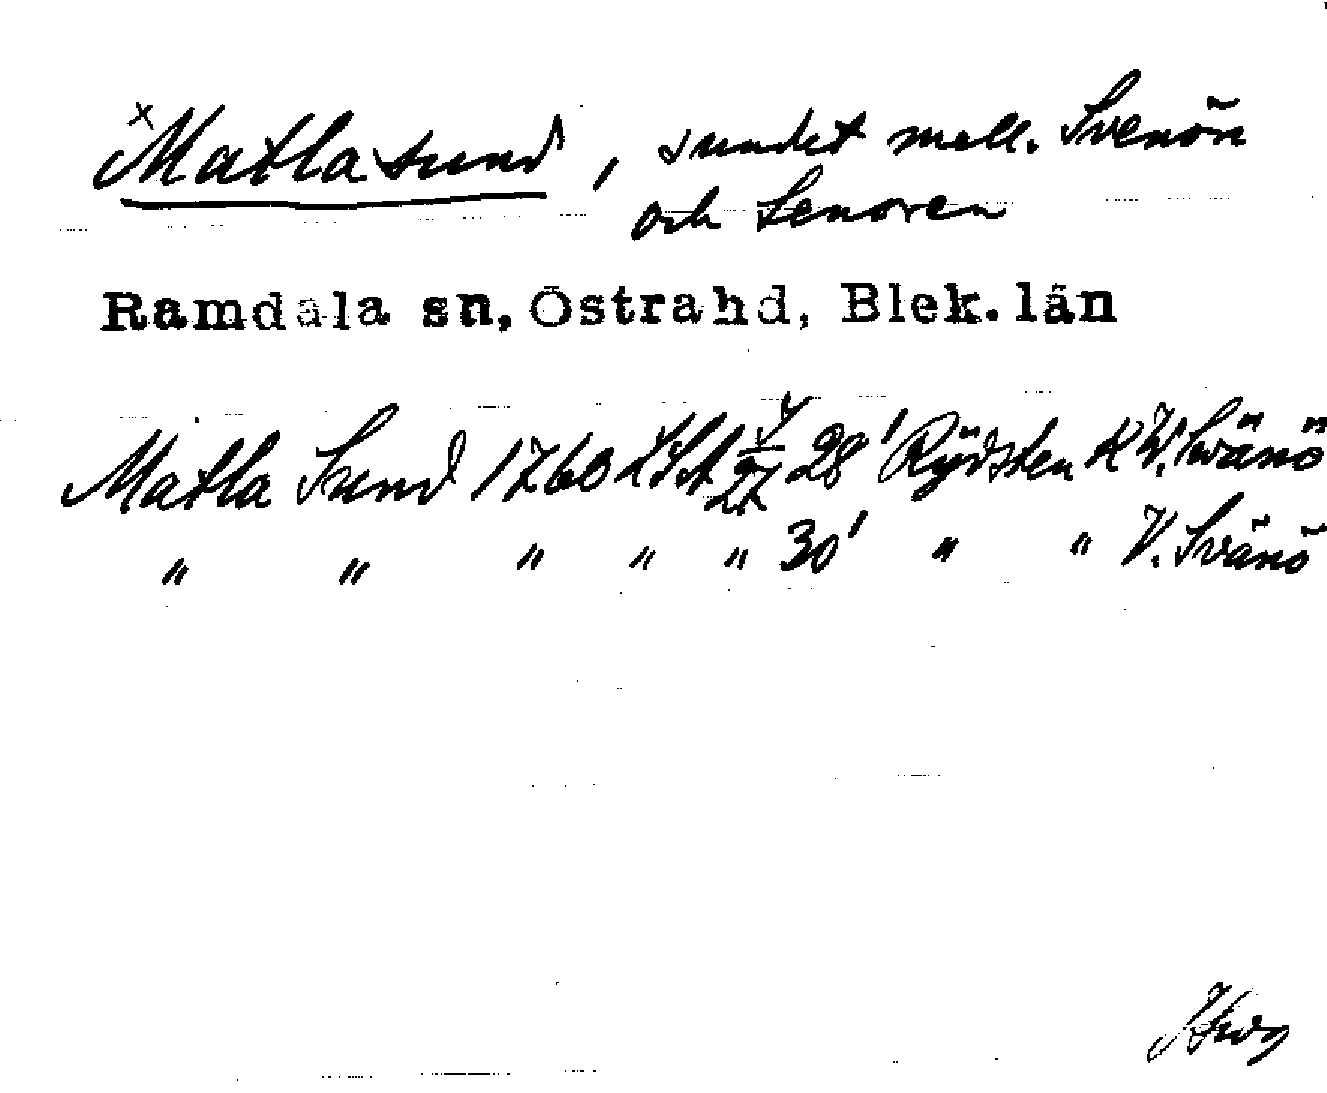 x Matlasund, sundet mell. Svenön
och Senoren
Ramdala sn, Östra hd, Blek. län
Matla Sund 1760 LSA 28' Rÿdsten K V. Svänö
" " " " " 30' " " V. Svänö